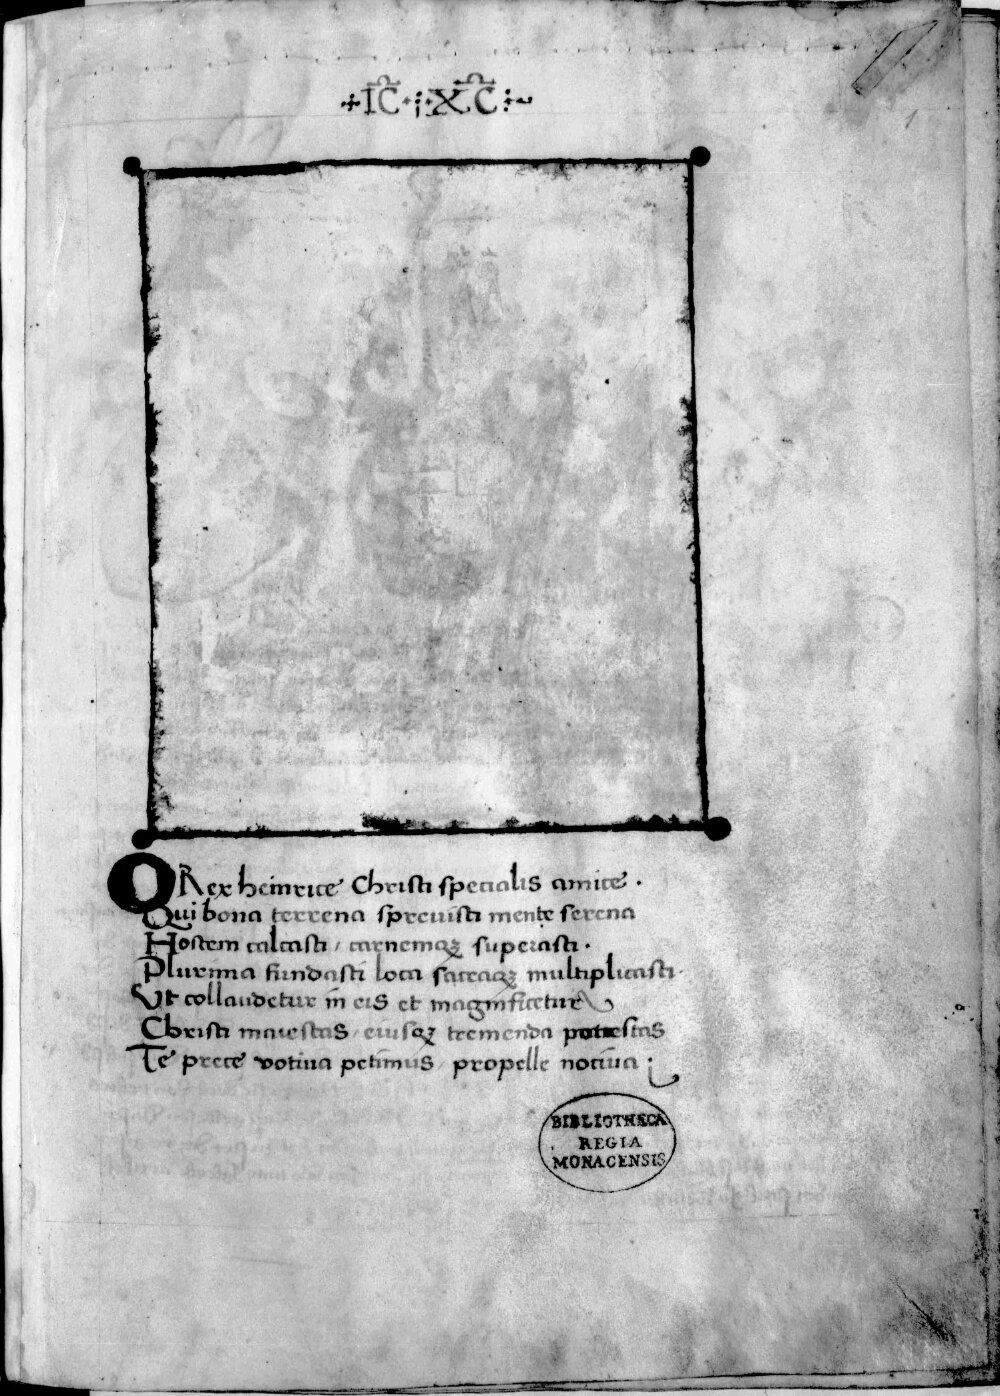 +IC·:·XC:~
1
O Rex heinrice Christi specialis amice ·
Qui bona terrena sprevisti mente serena
Hostem calcasti / carnemqʒ superasti ·
Plurima fundasti loca sacraqʒ multiplicasti ·
Vt collaudetur in eis et magnificetur
Christi maiestas / eiusqʒ tremenda potestas
Te prece votiva petimus / propelle nociva :
BIBLIOTHECA
REGIA
MONACENSIS